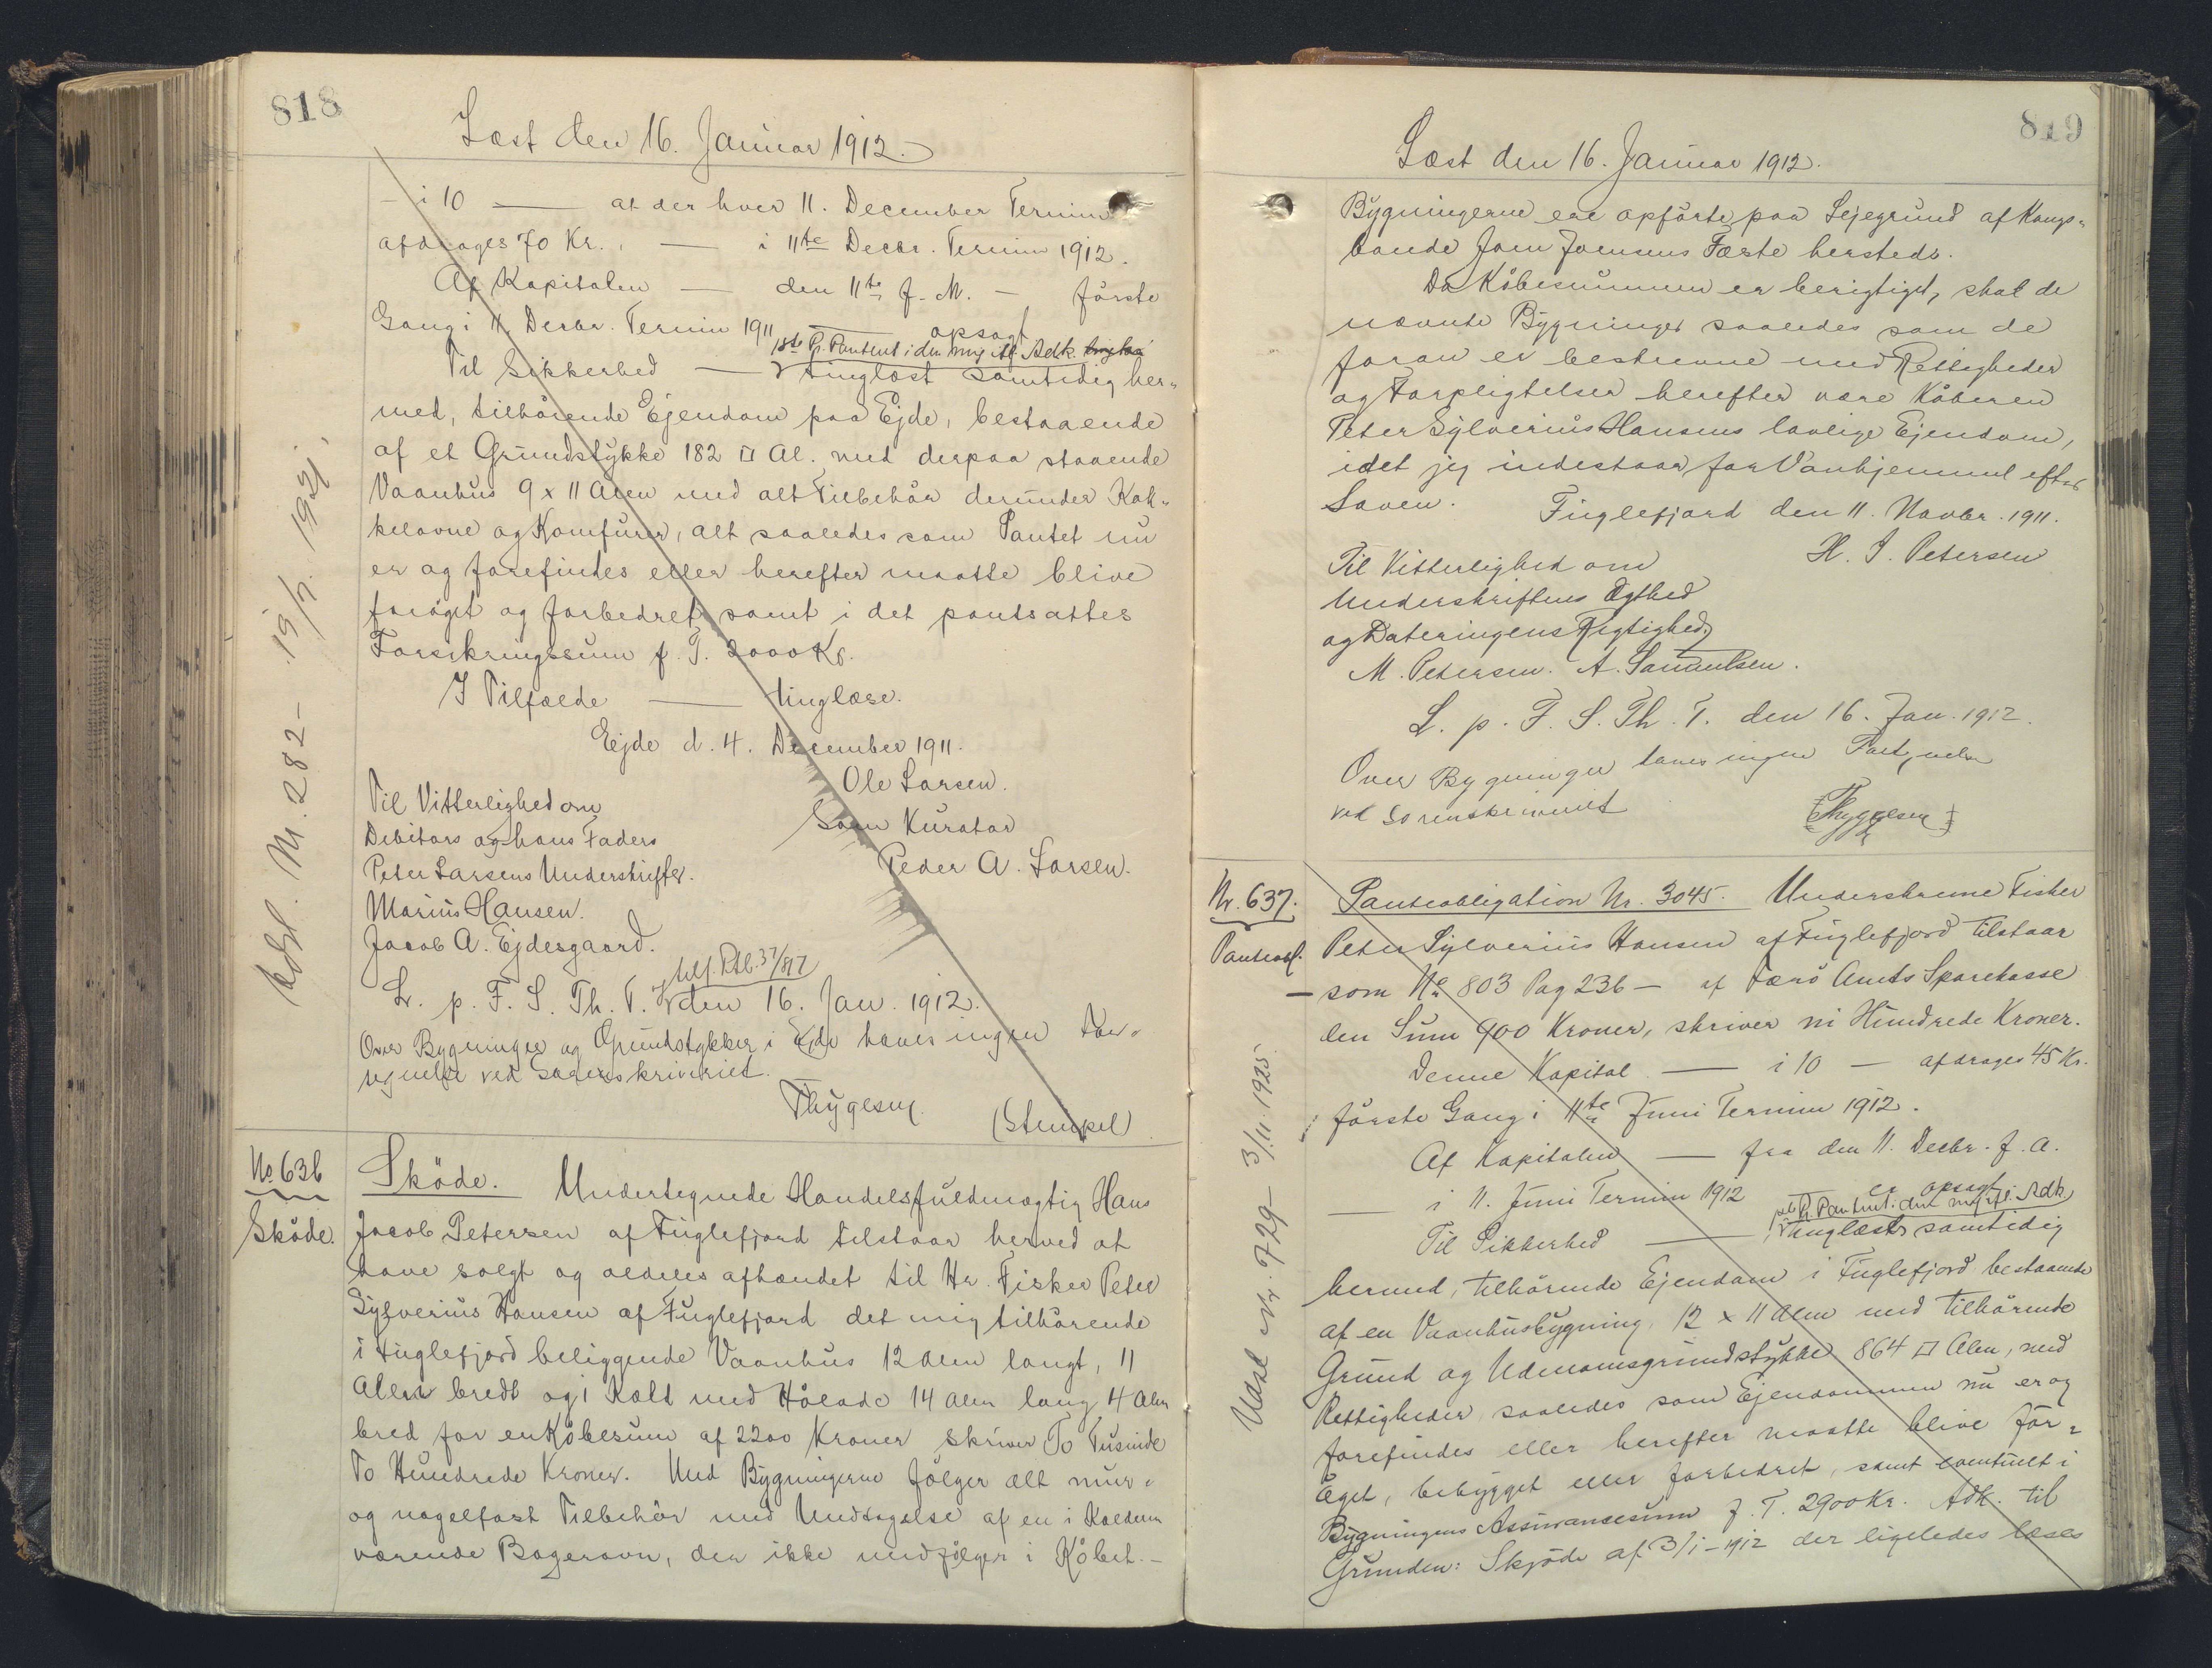 818
Læst den 16. Januar 1912.
- i 10 — at der hver 11. December Termin
afdrages 70 Kr., — i 11te Decbr. Termin 1912.
Af Kapitalen — den 11te f. M. — förste
Gang i 11 Decbr. Termin 1911 — opsagt
Til Sikkerhed — tinglæst samtidig her-
1ste P. Panteret i den mig ifl. Adk.
med, tilhörende Ejendom paa Ejde, bestaaende
af et Grundstykke 182 □ Al. med derpaa staaende
Vaanhus 9 x 11 Alen med alt Tilbehör derunder Kak-
kelovne og Komfurer, alt saaledes som Pantet nu
er og forefindes eller herefter maatte blive
foröget og forbedret, samt i det pantsattes
Forsikringssum f. T. 2000 Kr.
I Tilfælde — tinglæse.
Ejde d. 4. December 1911.
Ole Larsen.
Til Vitterlighed om
Som Kurator
Debitors og hans Faders
Peder A. Larsen.
Peter Larsens Underskrifter.
Marius Hansen.
Jacob A. Ejdesgaard.
L. p. F. S. Th. T. den 16. Jan. 1912.
Over Bygninger og Grundstykker i Ejde haves ingen For-
tegnelse ved Sorenskriveriet.
Thygesen
(Stempel)
Udsl. Nr. 282 - 19/7. 1921.
No. 636
Sköde.
Sköde. Undertegnede Handelsfuldmægtig Hans
Jacob Petersen af Fuglefjord tilstaar herved at
have solgt og aldeles afhændet til Hr. Fisker Peter
Sylverius Hansen af Fuglefjord det mig tilhörende
i Fuglefjord beliggende Vaanhus 12 Alen langt, 11
Alen bredt og 1 Kalt med Hölade 14 Alen lang 4 Alen
bred for en Köbesum af 2200 Kroner skriver To Tusinde
To Hundrede Kroner. Med Bygningerne fölger alt mur-
og nagelfast Tilbehör med Undtagelse af en i Kælderen
værende Bagerovn, der ikke medfölger i Köbet. -
819
Læst den 16. Januar 1912.
Bygningerne ere opförte paa Lejegrund af Kongs-
bonde Joen Joensens Fæste hersteds.
Da Köbesummen er berigtiget, skal de
nævnte Bygninger saaledes som de
foran er beskrevne med Rettigheder
og Forpligtelser herefter være Köberen
Peter Sylverius Hansens lovlige Ejendom,
idet jeg indestaar for Vanhjemmel efter
Loven. Fuglefjord den 11. Novbr. 1911.
H. J. Petersen
Til Vitterlighed om
Underskriftens Ægthed
og Dateringens Rigtighed,
M. Petersen. A. Samuelsen.
L. p. F. S. Th. T. den 16. Jan. 1912.
Over Bygninger haves ingen Fortegnelse
ved Sorenskriveriet
Thygesen
Nr. 637.
Panteobl.
Panteobligation Nr. 3045. Underskrevne Fisker
Peter Sylverius Hansen af Fuglefjord tilstaar
— som No 803 Pag 236 — af Færö Amts Sparekasse
den Sum 900 Kroner, skriver ni Hundrede Kroner.
Denne Kapital — i 10 — afdrages 45 Kr.
förste Gang i 11te Juni Termin 1912.
Af Kapitalen — fra den 11. Decbr. f. A.
— i 11. Juni Termin 1912 — er opsagt
Til Sikkerhed — tinglæst samtidig
P. Panteret i den mig ifl. Adk.
hermed, tilhörende Ejendom i Fuglefjord bestaaende
af en Vaanhusbygning, 12 x 11 Alen med tilhörende
Grund og Udmarksgrundstykke 864 □ Alen, med
Rettigheder saaledes som Ejendommen nu er og
forefindes eller herefter maatte blive for-
öget, bebygget eller forbedret, samt eventuelt i
Bygningens Assurancesum f. T. 2900 Kr. Adk. til
Grunden: Skjöde af 3/1 - 1912 der ligeledes læses
Udsl Nr. 729 - 3/11. 1925.